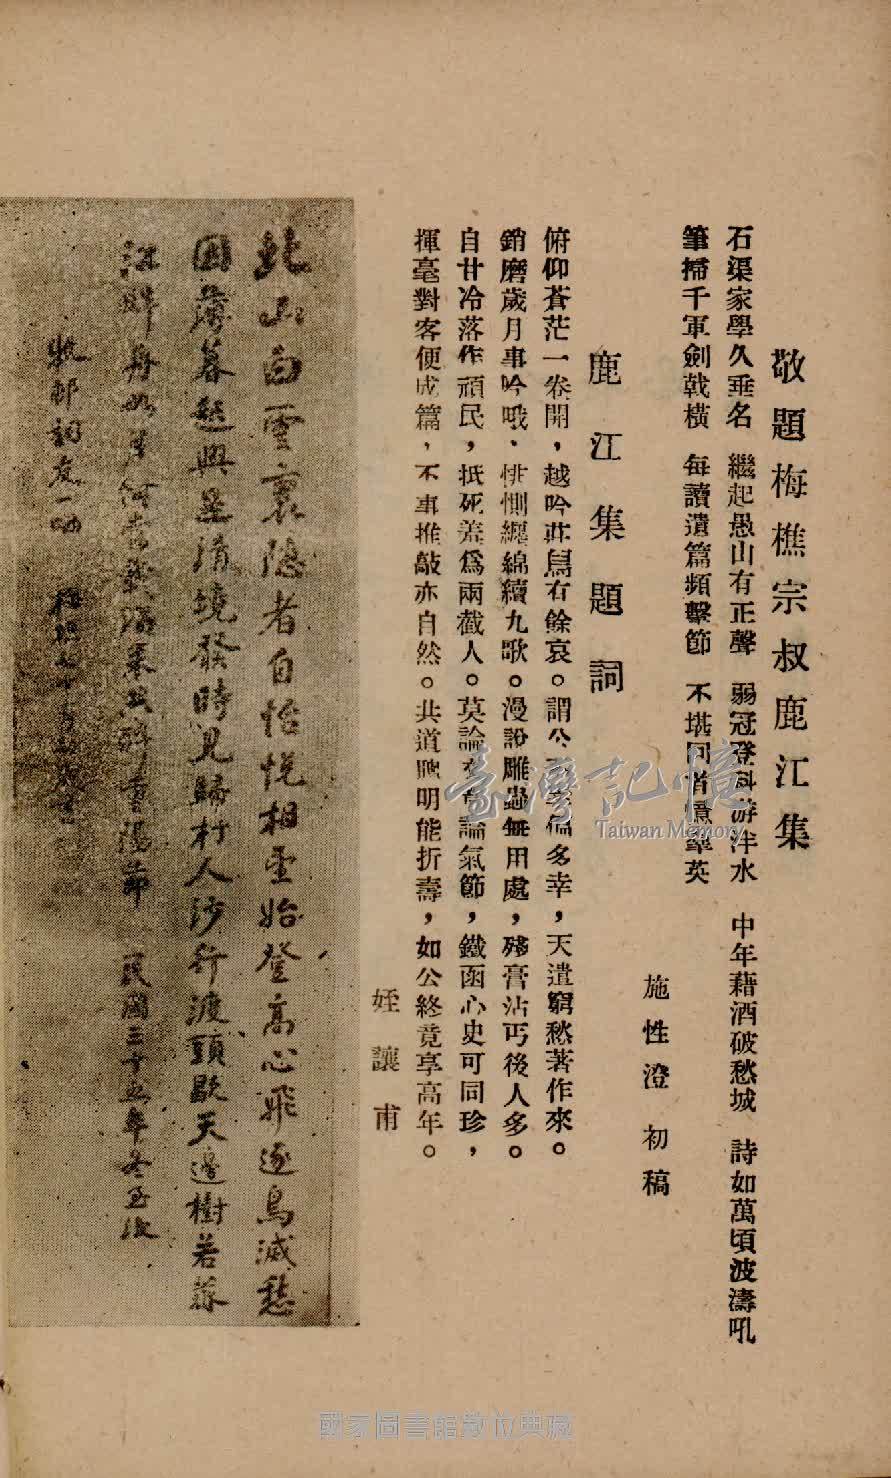 敬題梅樵宗叔鹿江集
石渠家學久垂名　繼起愚山有正聲　弱冠登科游泮水　中年藉酒破愁城　詩如萬頃波濤吼
筆掃千軍劍戟橫　每讀遺篇頻擊節　不堪回首憶羣英
施性澄初稿
鹿江集題詞
俯仰蒼茫一卷開，越吟莊舃有餘哀。謂公多幸，天遣窮愁著作來。
銷磨歲月事吟哦、悱惻纏綿續九歌。漫說雕蟲無用處，殘膏沾丐後人多。
自甘冷落作頑民，抵死羞爲兩截人。莫論文章論氣節，鐵函心史可同珍，
揮毫對客便成篇，不事推敲亦自然。共道聰明能折壽，如公終竟享高年。
姪讓甫
北山白雲裏隱者自怡悅相望始登高心飛逐鳥滅愁
因薄暮起興是清境發時見歸村人沙行渡頭歇天邊樹若薺
江畔舟如月何當載酒來共醉重陽節　民國三十五年冬至後
詞友一哂　梅樵七十
臺灣記憶
Taiwan Memory
國家圖書館數位典藏